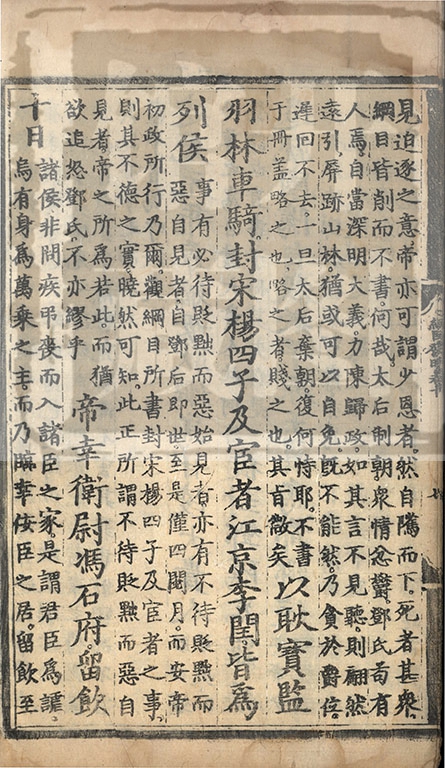 見迫逐之意帝亦可謂少恩者然自隲而下死者甚衆
綱目皆削而不書何哉太后制朝衆情忿欝鄧氏苟有
人焉自當深明大義力陳歸政如其言不見聽則翩然
遠引屏跡山林猶或可以自免旣不能然乃貪於爵位
遲回不去一旦太后棄朝復何恃耶不書
于冊盖略之也略之者賤之也其旨微矣以耿寶監
羽林車騎封宋楊四子及宦者江京李閏皆爲
列侯事有必待貶黜而惡始見者亦有不待貶黜而
惡自見者自鄧后即世至是僅四閱月而安帝
初政所行乃爾觀綱目所書封宋楊四子及宦者之事
則其不德之實曉然可知此正所謂不待貶黜而惡自
見者帝之所爲若此而猶
欲追怒鄧氏不亦繆乎帝幸衛尉馮石府留飲
十日諸侯非問疾弔喪而入諸臣之家是謂君臣爲謔
烏有身爲萬乘之主而乃臨幸侫臣之居留飲至